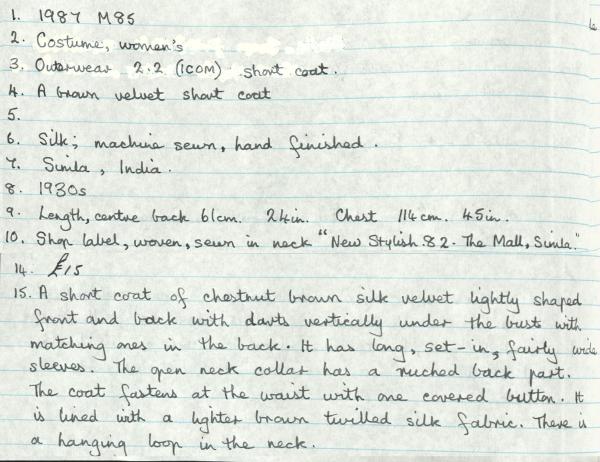 1. 1987 M85
2. Costume, women's
3. Outerwear 2.2 (ICOM) short coat.
4. A brown velvet short coat
5.
6. Silk; machine sewn, hand finished.
7. Simla, India.
8. 1930s
9. Length, centre back 61cm. 24in. Chest 114cm. 45in.
10. Shop label, woven, sewn in neck "New Stylish. 82. The Mall, Simla."
14. £15
15. A short coat of chestnut brown silk velvet lightly shaped
front and back with darts vertically under the bust with
matching ones in the back. It has long, set-in, fairly wide
sleeves. The open neck collar has a ruched back part.
The coat fastens at the waist with one covered button. It
is lined with a lighter brown twilled silk fabric. There is
a hanging loop in the neck.